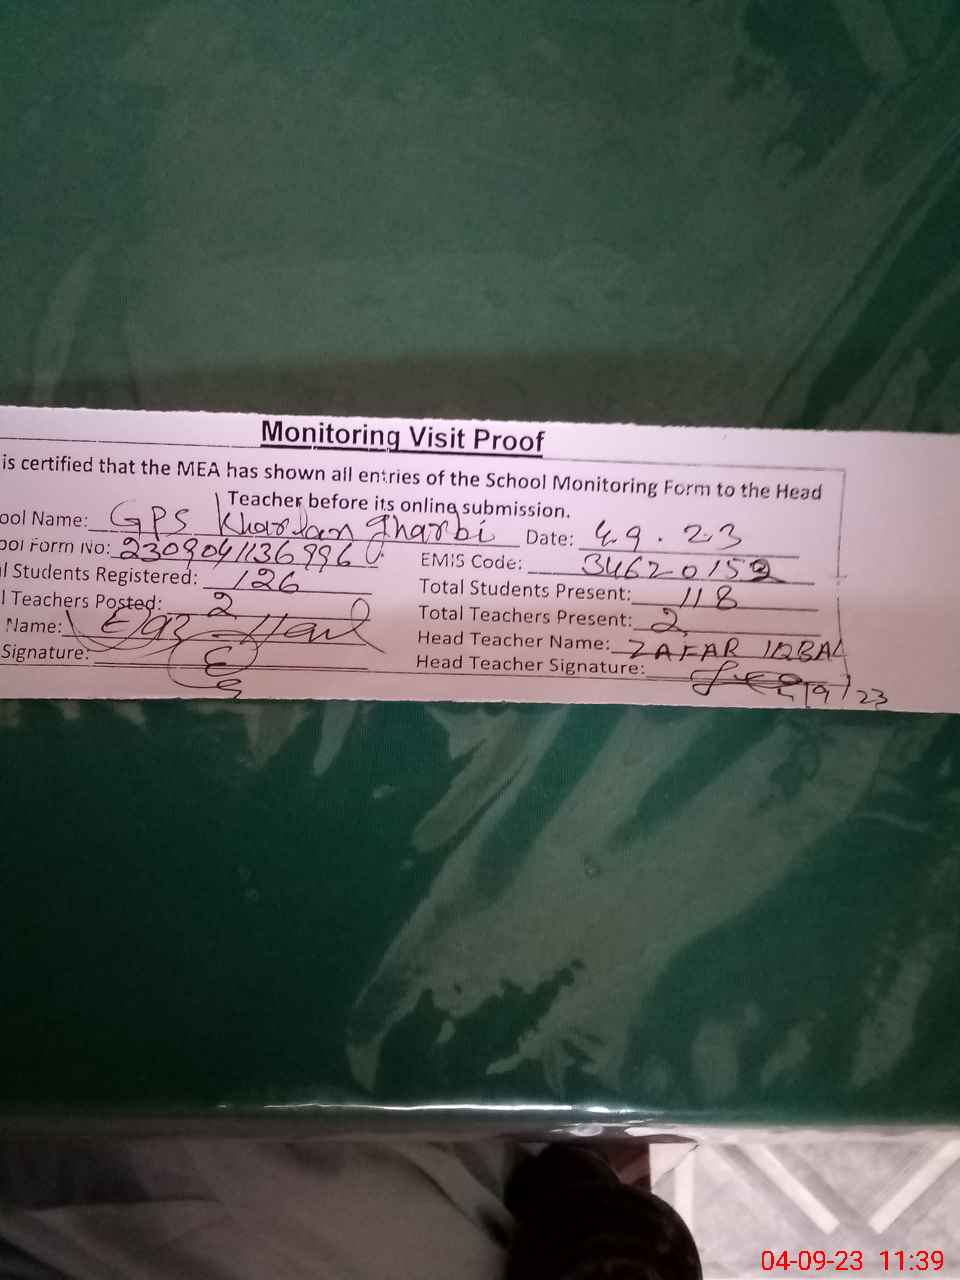 Monitoring Visit Proof
is certified that the MEA has shown all entries of the School Monitoring Form to the Head
Teacher before its online submission.
ool Name: GPS Kharlan Gharbi Date: 4.9.23
ool Form No: 2309041136996 EMIS Code: 34620152
l Students Registered: 126 Total Students Present: 118
l Teachers Posted: 2 Total Teachers Present: 2
Name: Head Teacher Name: ZAFAR IQBAL
Signature: Head Teacher Signature: 4/9/23
04-09-23 11:39